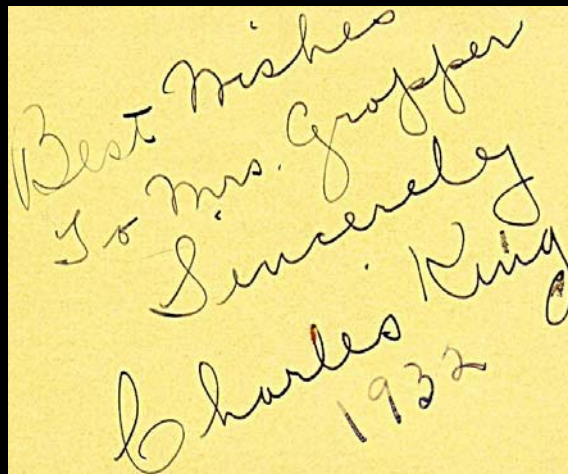 Best Wishes
To Mrs. Gropper
Sincerely
Charles King
1932